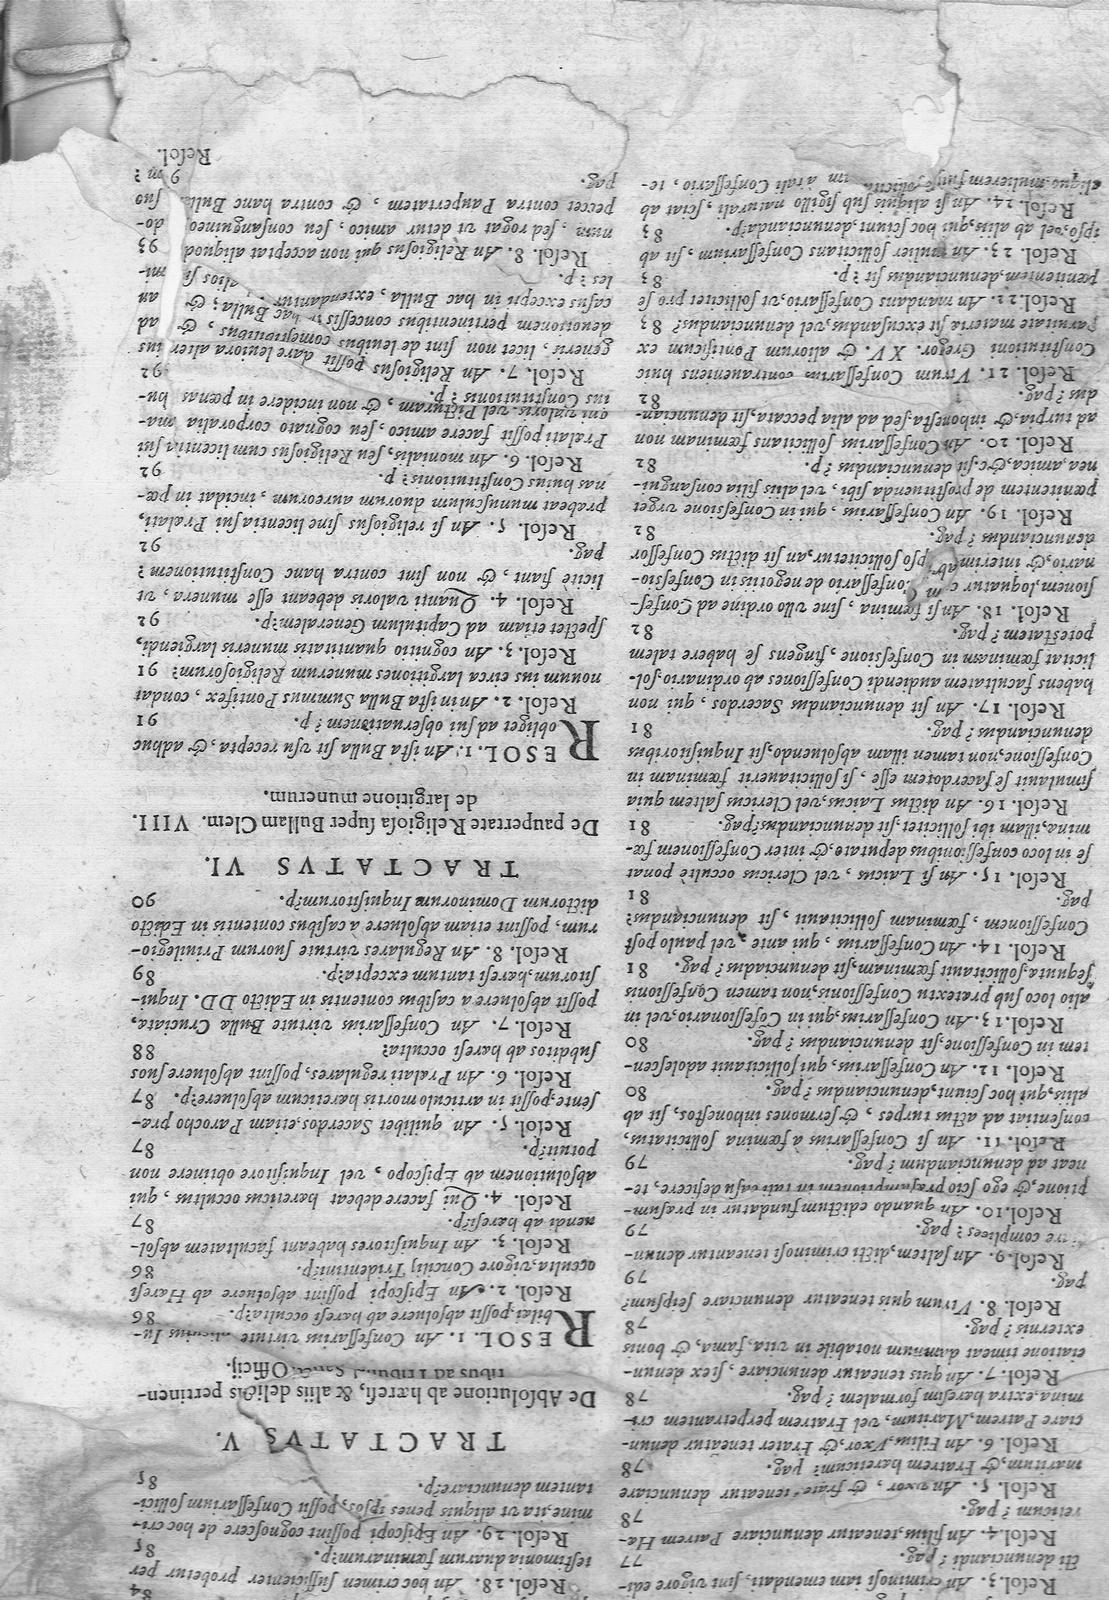 Resol. 3. An criminosi iam emendati, sint vigore edi-
cti denunciandi? pag. 77
Resol. 4. An filius, teneatur denunciare Patrem Hæ-
reticum? pag. 78
Resol. 5. An vxor, & frater teneatur denunciare
maritum, & Fratrem hæreticum? pag. 78
Resol. 6. An Filius, Vxor, & Frater teneatur denun-
ciare Patrem, Maritum, vel Fratrem perpetrantem cri-
mina extra hæresim formalem? pag. 78
Resol. 7. An quis teneatur denunciare, si ex denun-
ciatione timeat damnum notabile in vita, fama, & bonis
externis? pag. 78
Resol. 8. Vtrum quis teneatur denunciare seipsum?
pag. 79
Resol. 9. An saltem, dicti criminosi teneantur denun-
complices? pag. 79
Resol. 10. An quando edictum fundatur in præsum-
ptione, & ego scio præsumptionem in tali casu deficere, te-
neat ad denunciandum? pag. 79
Resol. 11. An si Confessarius à fœmina sollicitatus,
consentiat ad actus turpes, & sermones inhonestos, sit ab
aliis, qui hoc sciunt, denunciandus? pag. 80
Resol. 12. An Confessarius, qui sollicitauit adolescen-
tem in Confessione, sit denunciandus? pag. 80
Resol. 13. An Confessarius, qui in Cõfessionario, vel in
alio loco sub prætextu Confessionis, non tamen Confessionis
sequuta, sollicitauit fœminam, sit denunciandus? pag. 81
Resol. 14. An Confessarius, qui ante, vel paulo post
Confessionem, fœminam sollicitauit, sit denunciandus?
pag. 81
Resol. 15. An si Laicus, vel Clericus occultè ponat
se in loco confessionibus deputato, & inter Confessionem fœ-
mina, illam ibi sollicitet, sit denunciandus? pag. 81
Resol. 16. An dictus Laicus, vel Clericus saltem quia
simulauit se sacerdotem esse, si sollicitauerit fœminam in
Confessione, non tamen illam absoluendo, sit Inquisitoribus
denunciandus? pag. 81
Resol. 17. An sit denunciandus Sacerdos, qui non
habens facultatem audiendi Confessiones ab ordinario, sol-
licitat fœminam in Confessione, fingens se habere talem
potestatem? pag. 82
Resol. 18. An si fœmina, sine vllo ordine ad Confes-
sionem, loquatur Confessario de negotiis in Confessio-
nario, & interim ab ipso sollicitetur, an sit dictus Confessor
denunciandus? pag. 82
Resol. 19. An Confessarius, qui in Confessione vrget
pœnitentem de prostituenda sibi, vel alius filia consangui-
nea, amica, &c. sit denunciandus? p. 82
Resol. 20. An Confessarius sollicitans fœminam non
ad turpia, & inhonesta, sed ad alia peccata, sit denuncian-
dus? pag. 82
Resol. 21. Vtrum Confessarius contraueniens huic
Constitutioni Gregor. XV. & aliorum Pontificum ex
paruitate materiæ sit excusandus, vel denunciandus? 83
Resol. 22. An mandans Confessario, vt sollicitet pro se
pœnitentem, denunciandus sit? p. 83
Resol. 23. An mulier sollicitans Confessarium, sit ab
ipso, vel ab aliis, qui hoc sciunt, denuncianda? p. 83
Resol. 24. An si aliquis sub sigillo naturali, sciat ab
aliqua muliere fuisse sollicitatam à tali Confessario, te-
84
Resol. 28. An hoc crimen sufficienter probetur per
testimonia duarum fœminarum? p. 85
Resol. 29. An Episcopi possint cognoscere de hoc cri-
mine, ita vt aliquis penes ipsos, possit Confessarium sollici-
tantem denunciare? p. 85
TRACTATVS V.
De Absolutione ab hæresi, & aliis delictis pertinen-
tibus ad Tribunal Sanct. Officij.
RESOL. 1. An Confessarius virtute alicuius Iu-
bilæi, possit absoluere ab hæresi occulta? p. 86
Resol. 2. An Episcopi possint absoluere ab Hæresi
occulta, vigore Concilij Tridentini? p. 86
Resol. 3. An Inquisitores habeant facultatem absol-
uendi ab hæresi? p. 87
Resol. 4. Qui facere debeat hæreticus occultus, qui
absolutionem ab Episcopo, vel Inquisitore obtinere non
potuit? p. 87
Resol. 5. An quilibet Sacerdos, etiam Parocho præ-
sente, possit in articulo mortis hæreticum absoluere? p. 87
Resol. 6. An Prælati regulares, possint absoluere suos
subditos ab hæresi occulta? 88
Resol. 7. An Confessarius virtute Bullæ Cruciatæ,
possit absoluere à casibus contentis in Edicto DD. Inqui-
sitorum, hæresi tantum excepta? p. 89
Resol. 8. An Regulares virtute suorum Priuilegio-
rum, possint etiam absoluere à casibus contentis in Edicto
dictorum Dominorum Inquisitorum? p. 90
TRACTATVS VI.
De paupertate Religiosa super Bullam Clem. VIII.
de largitione munerum.
RESOL. 1. An ista Bulla sit vsu recepta, & adhuc
obliget ad sui obseruationem? p. 91
Resol. 2. An in ista Bulla Summus Pontifex, condat
nouum ius circa largitiones munerum Religiosorum? 91
Resol. 3. An cognitio quantitatis muneris largiendi,
spectet etiam ad Capitulum Generalem? p. 92
Resol. 4. Quanti valoris debeant esse munera, vt
licitè fiant, & non sint contra hanc Constitutionem?
pag. 92
Resol. 5. An si religiosus sine licentia sui Prælati,
præbeat munusculum duorum aureorum, incidat in pœ-
nas huius Constitutionis? p. 92
Resol. 6. An monialis, seu Religiosus cum licentia sui
Prælati possit facere amico, seu cognato corporalia ma-
gni valoris vel Picturam, & non incidere in pœnas hu-
ius Constitutionis? p. 92
Resol. 7. An Religiosus possit dare leuiora alter ius
generis, licet non sint de leuibus comestionibus, & ad
deuotionem pertinentibus concessis in hac Bulla; & an
casus exceptis in hac Bulla, extendantur alios si mi-
les? p. 93
Resol. 8. An Religiosus qui non acceptat aliquod do-
num, sed rogat vt detur amico, seu consanguineo suo
peccet contra Paupertatem, & contra hanc Bullam?
pag.
Resol.